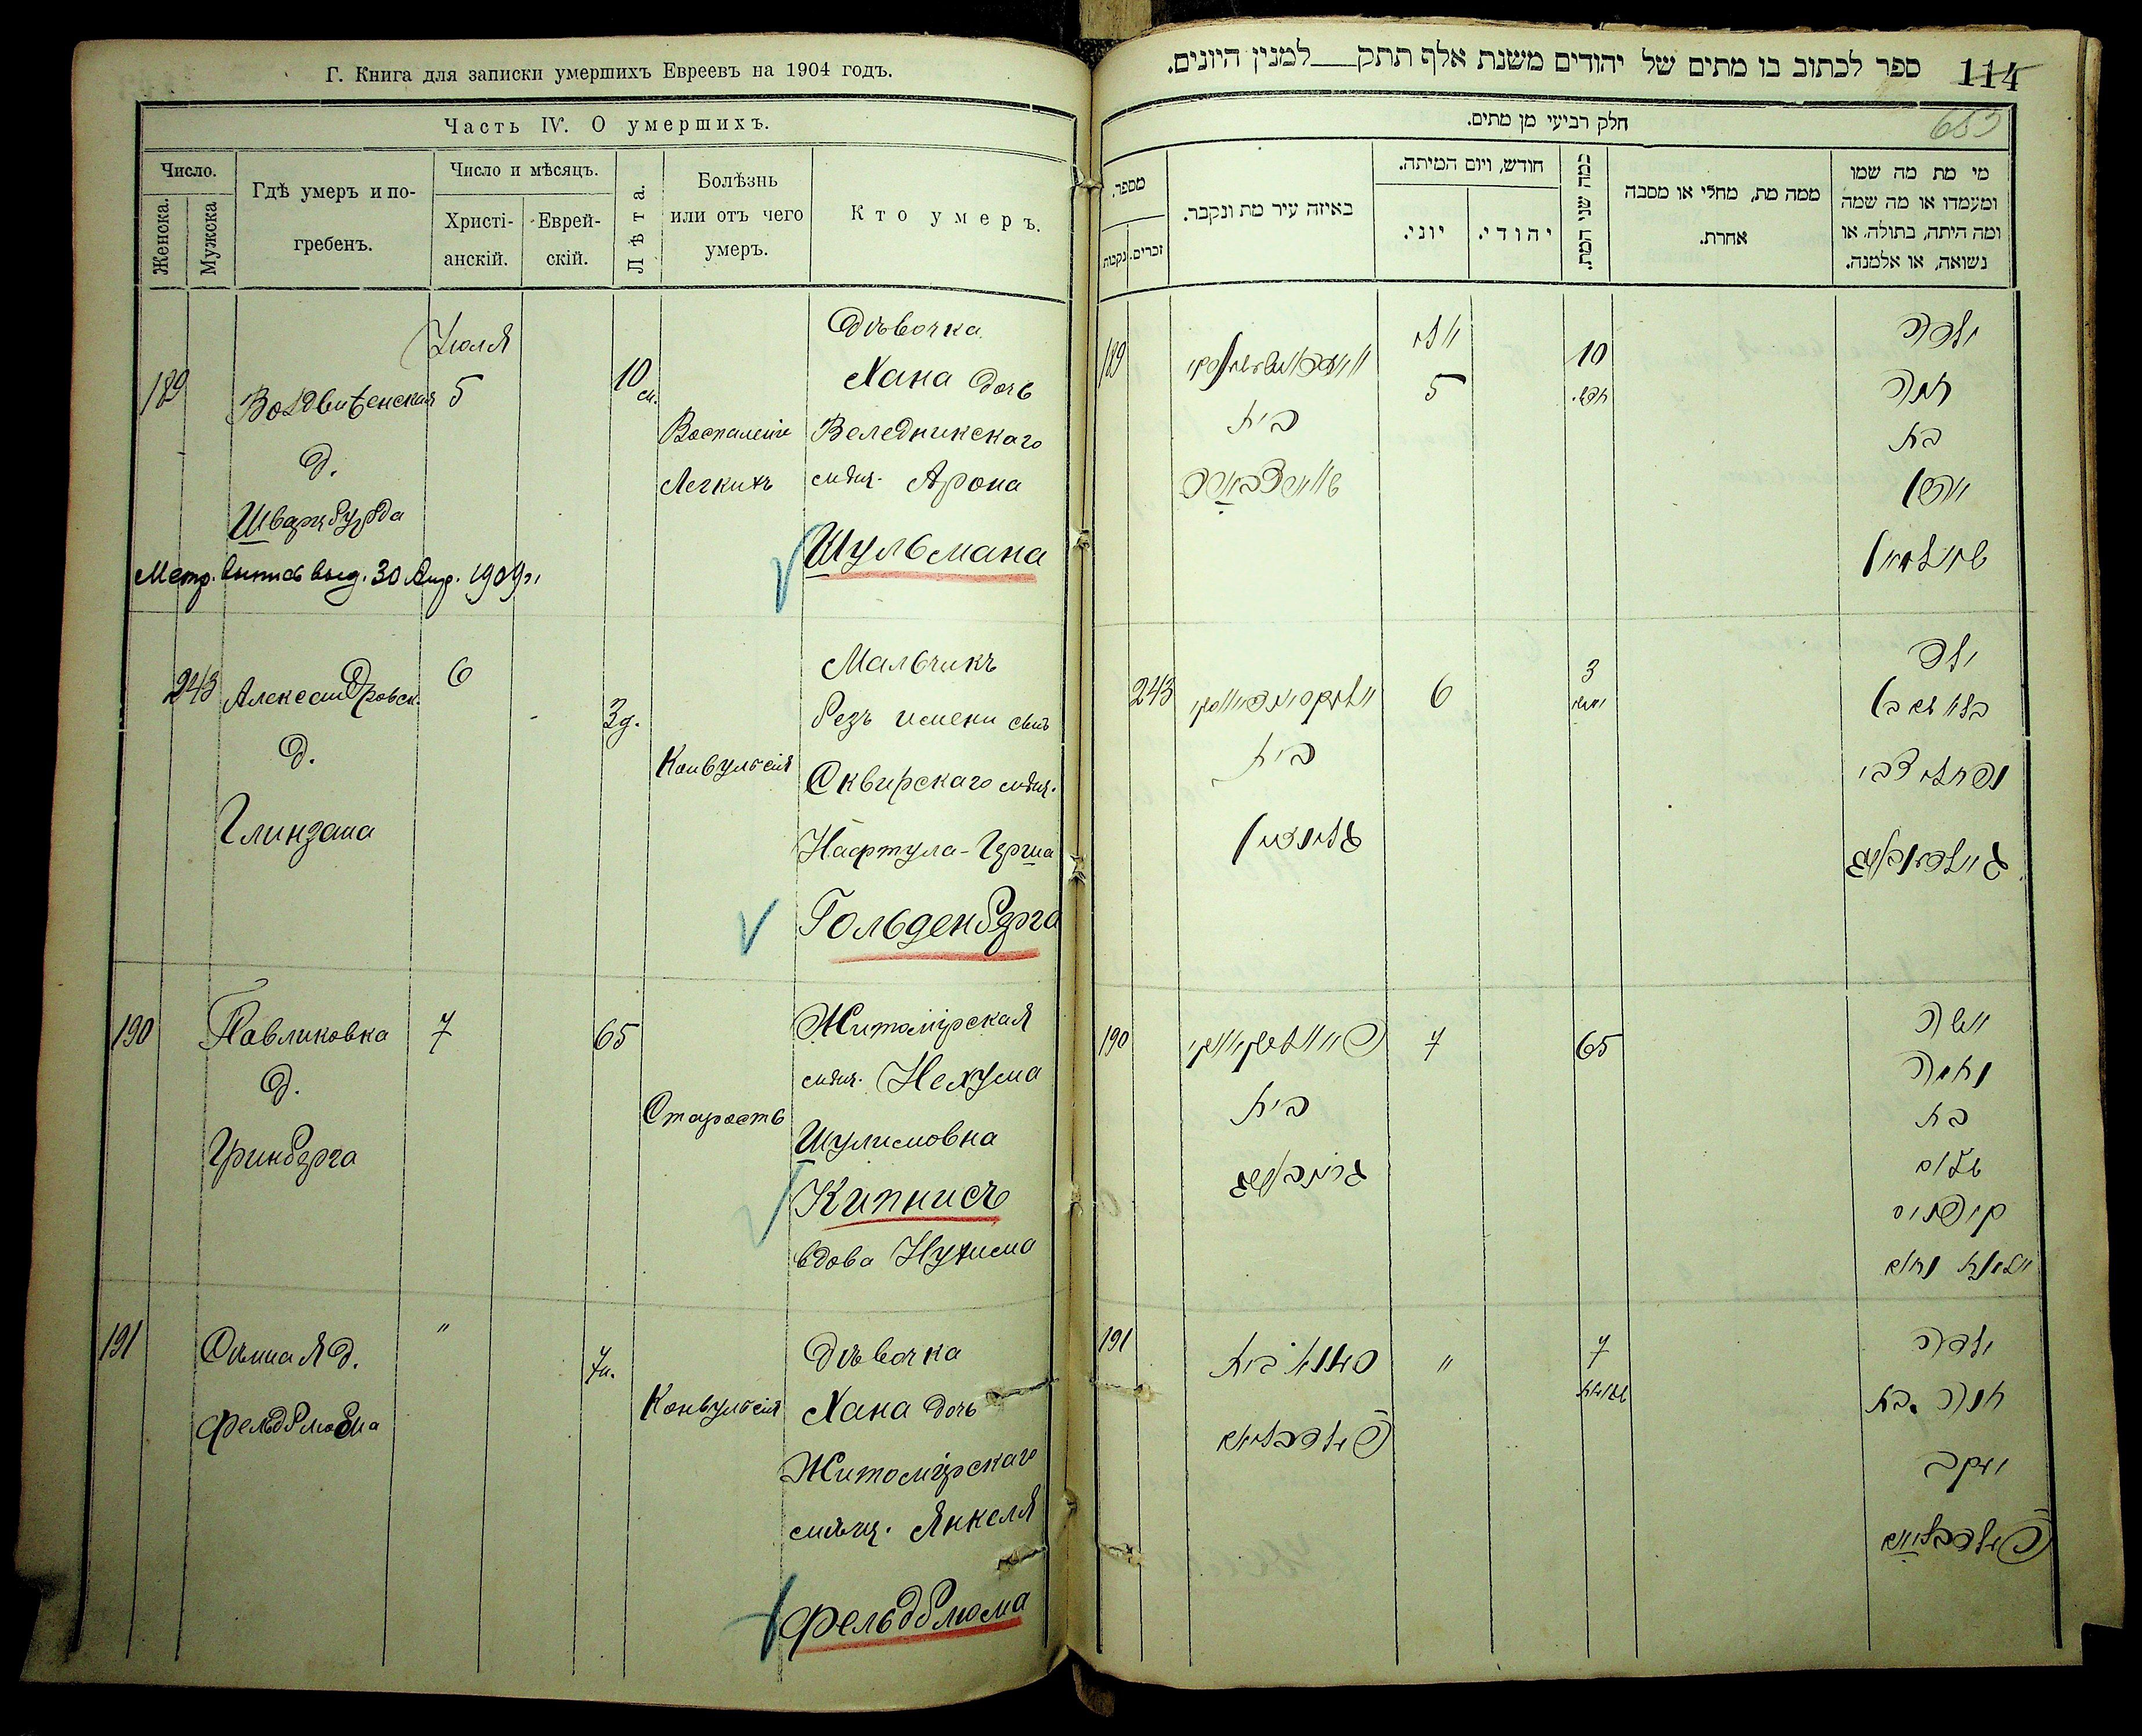 Г. Книга для записки умершихъ Евреевъ на 1904 годъ.
Часть IV. О умершихъ.
Число.
Женска.
Мужска
Гдѣ умеръ и по-
гребенъ.
Число и мѣсяцъ.
Христі-
анскій.
Еврей-
скій.
Лѣта.
Болѣзнь
или отъ чего
умеръ.
Кто умеръ.
189
Воздвиженская
д.
Шварцбурда
Іюля
5
10
м.
Воспаленіе
Легкихъ
Дѣвочка
Хана дочь
Веледникскаго
мѣщ. Арона
Шульмана
Метр. выпись выд. 30 Апр. 1909 г.
243
Александровск.
д.
Глинзана
6
3 д.
Конвульсія
Мальчикъ
безъ имени сынъ
Сквирскаго мѣщ.
Нафтула-Герша
Гольденберга
190
Павликовка
д.
Гринберга
7
65
Старость
Житомірская
мѣщ. Нехума
Шулимовна
Кипнисъ
вдова Нухима
191
Сѣнная д.
Фельдблюма
"
7 н.
Конвульсія
Дѣвочка
Хана дочь
Житомірскаго
мѣщ. Янкеля
Фельдблюма
ספר לכתוב בו מתים של יהודים משנת אלף תתק למנין היונים.
114
653
חלק רביעי מן מתים.
מספר.
נקבות
זכרים.
באיזה עיר מת ונקבר.
חודש, ויום המיתה.
יוני.
יהודי.
כמה שני המת.
ממה מת, מחלי או מסבה
אחרת.
מי מת מה שמו
ומעמדו או מה שמה
ומה היתה, בתולה, או
נשואה, או אלמנה.
189
בית
יולי
5
10
חדש.
ילדה
חנה
בת
אהרן
שולמאן
243
בית
גלינזאן
6
3
ילד
בלא שם בן
נפתלי צבי
גאלדענבערג
190
בית
גרינבערג
7
65
אשה
נחומה
בת
שלום
קיפניס
אלמנת נחום
191
סענאי בית
פעלדבליום
"
7
שבועות
ילדה
חנה בת
יעקב
פעלדבליום